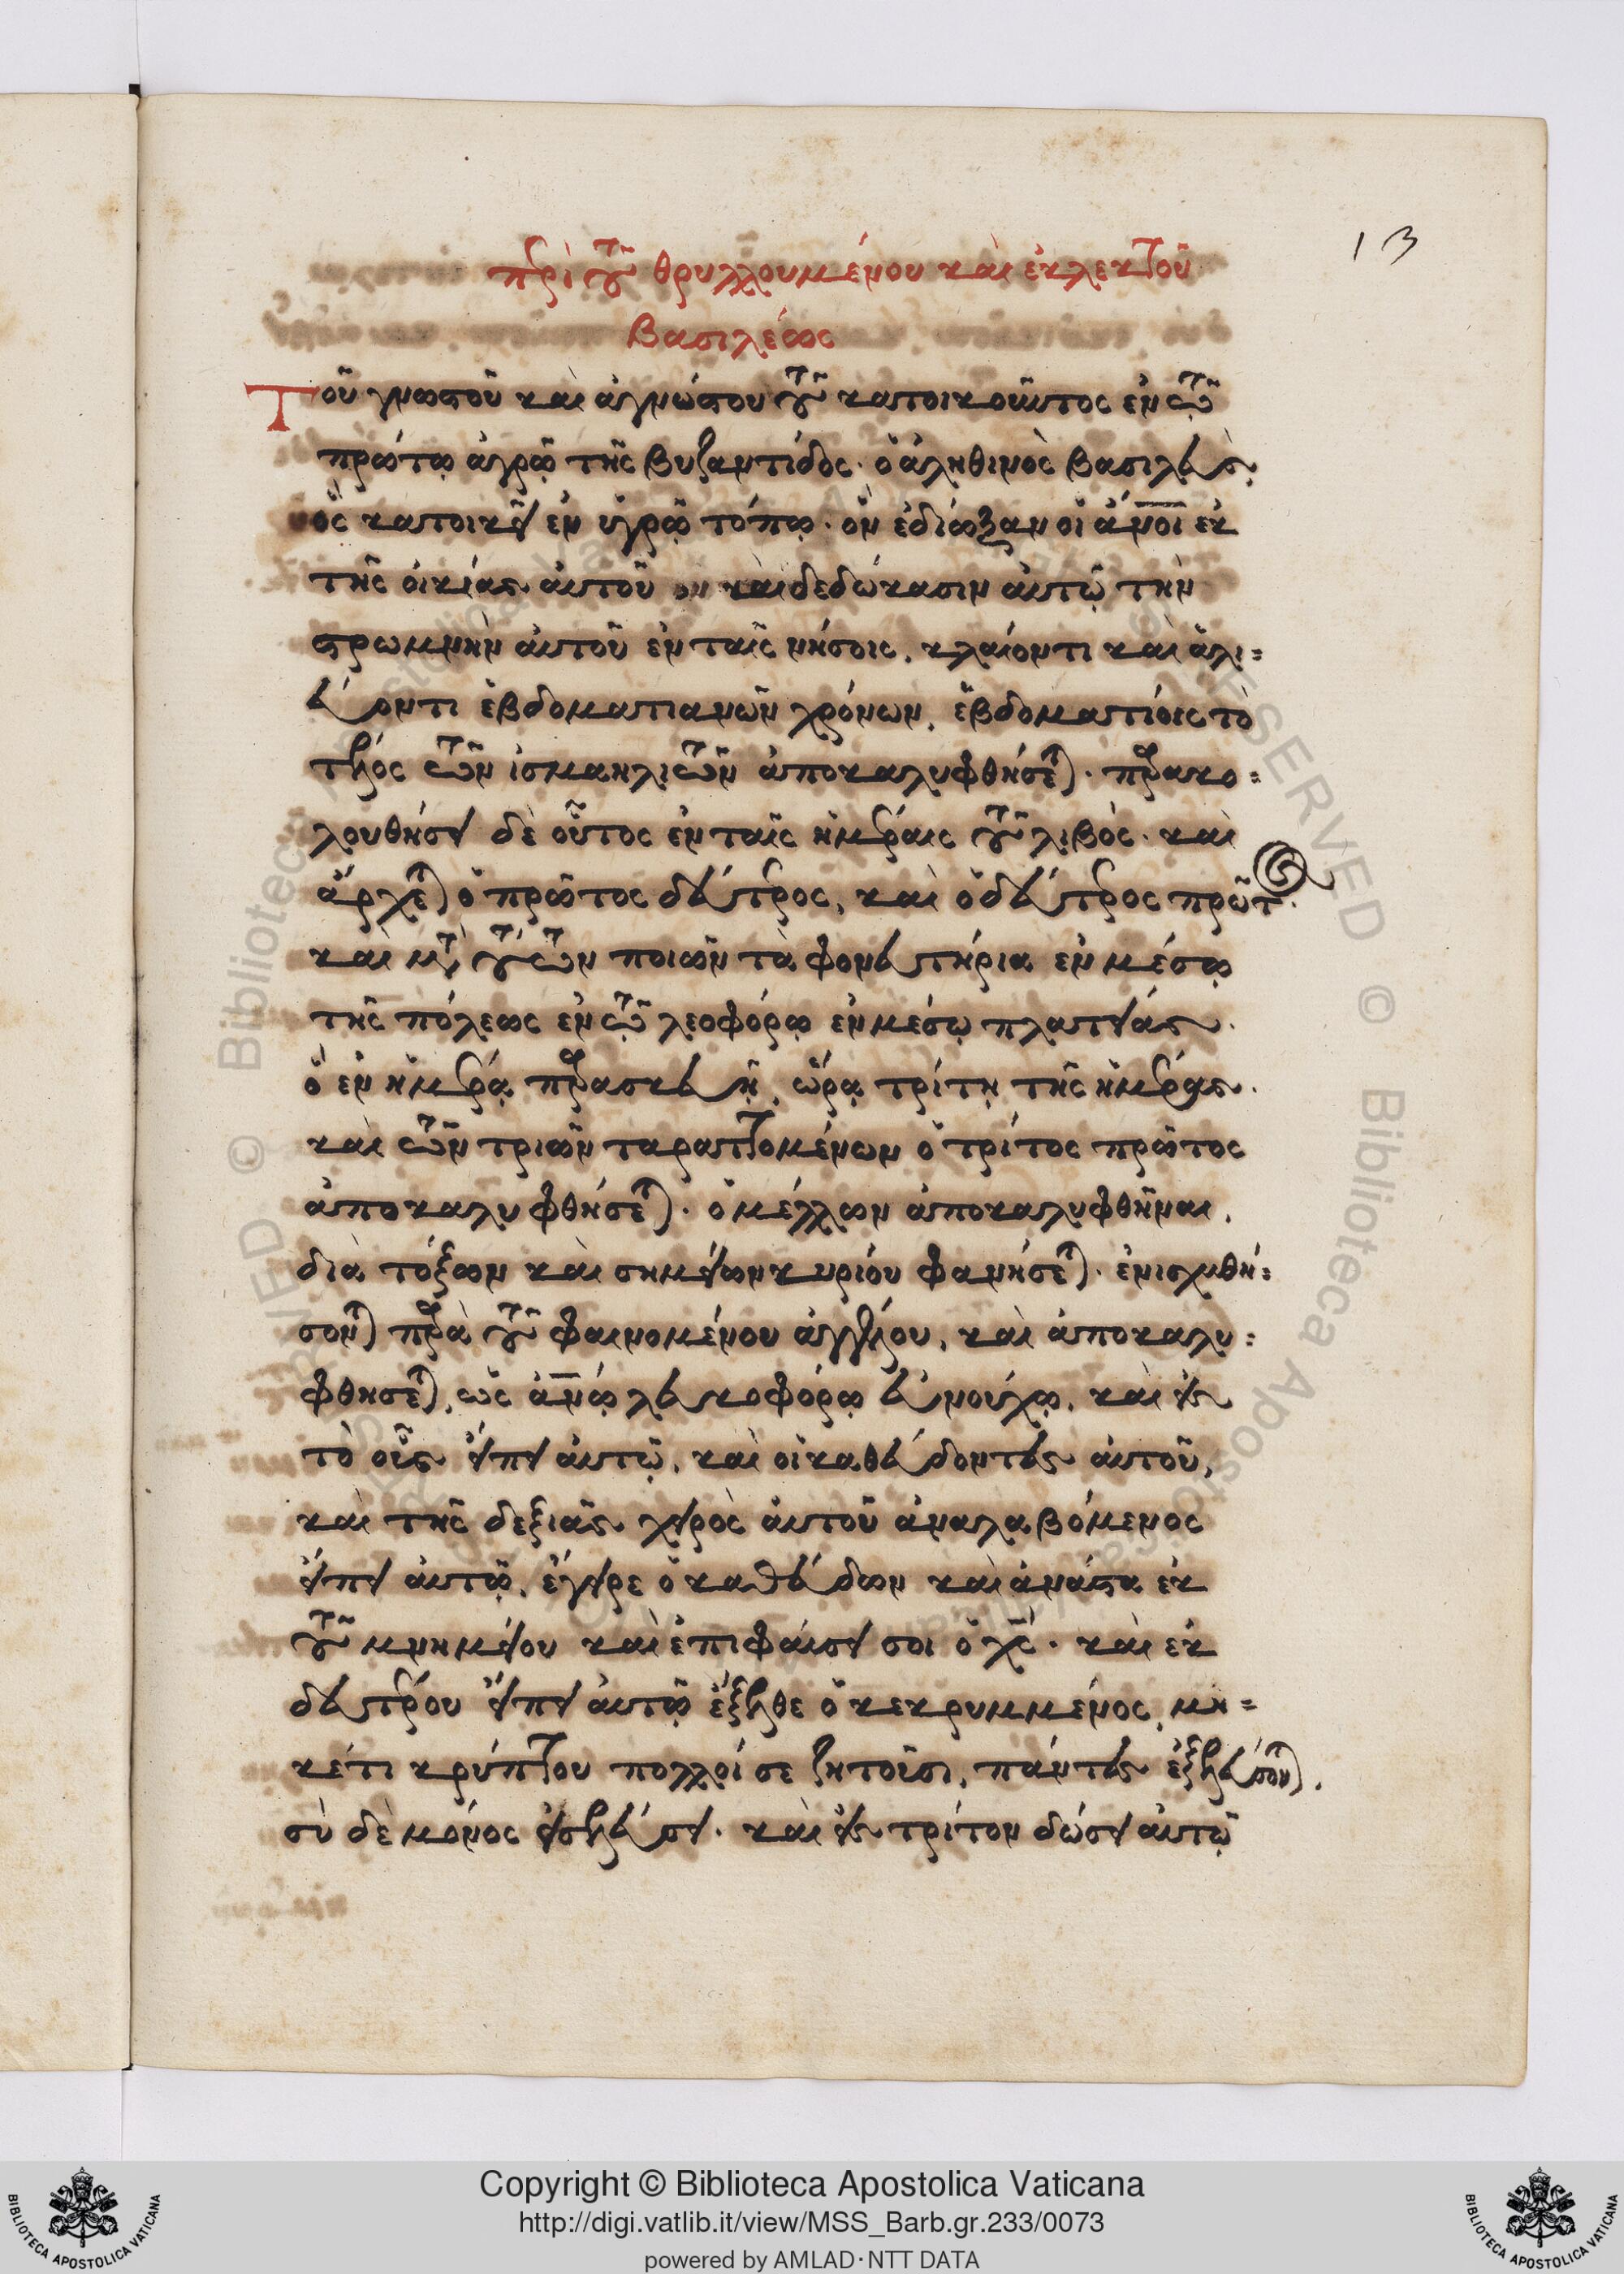 13
περὶ τοῦ θρυλλουμένου καὶ ἐκλεκτοῦ
βασιλέως
Τοῦ γνωστοῦ καὶ ἀγνώστου τοῦ κατοικοῦντος ἐν τῷ
πρώτῳ ἀγρῷ τῆς βυζαντίδος· ὁ ἀληθινὸς βασιλεὺς,
ὃς κατοικεῖ ἐν ὑγρῷ τόπῳ· ὃν ἐδίωξαν οἱ ἄν̅ο̅ι̅ ἐκ
τῆς οἰκίας αὐτοῦ καὶ δεδώκασιν αὐτῷ τὴν
στρωμνὴν αὐτοῦ ἐν ταῖς νήσοις, κλαίοντι καὶ ἁλι=
εύοντι ἑβδοματιανῶν χρόνων, ἑβδοματίοις τὸ
τέλος τῶν ἰσμαηλιτῶν ἀποκαλυφθήσεται· παρακο=
λουθήσει δὲ οὗτος ἐν ταῖς ἡμέραις τοῦ λιβός· καὶ
ἄρχεται ὁ πρῶτος δεύτερος, καὶ ὁ δεύτερος πρῶτ.
καὶ μετὰ τούτων ποιῶν τὰ φονευτήρια ἐν μέσῳ
τῆς πόλεως ἐν τῷ λεοφόρῳ ἐν μέσῳ πλατείας.
ὁ ἐν ἡμέρᾳ παρασκευῇ, ὥρᾳ τρίτῃ τῆς ἡμέρας.
καὶ τῶν τριῶν ταραττομένων ὁ τρίτος πρῶτος
ἀποκαλυφθήσεται· ὁ μέλλων ἀποκαλυφθῆναι,
διὰ τόξων καὶ σημείων κυρίου φανήσεται· ἐνισχυθή=
σονται παρὰ τοῦ φαινομένου ἀγγέλου, καὶ ἀποκαλυ=
φθησεται, ὡς ἀν̅ῷ λευκοφόρῳ εὐνούχῳ, καὶ εἰς
τὸ οὖς εἴπει αὐτῷ, καὶ οἱ καθεύδοντες αὐτοῦ,
καὶ τῆς δεξιᾶς χειρὸς αὐτοῦ ἀναλαβόμενος
εἴπει αὐτῷ, ἔγειρε ὁ καθεύδων καὶ ἀνάστα ἐκ
τοῦ μνημείου καὶ ἐπιφαύσει σοι ὁ χς̅· καὶ ἐκ
δευτέρου εἴπει αὐτῷ ἔξελθε ὁ κεκρυμμένος, μη=
κέτι κρύπτου πολλοί σε ζητοῦσι, πάντες ἐξελεύσονται,
σὺ δὲ μόνος εἰσελεύσει· καὶ εἰς τρίτον δώσει αὐτῷ
Copyright © Biblioteca Apostolica Vaticana
http://digi.vatlib.it/view/MSS_Barb.gr.233/0073
powered by AMLAD·NTT DATA
BIBLIOTECA APOSTOLICA VATICANA
BIBLIOTECA APOSTOLICA VATICANA